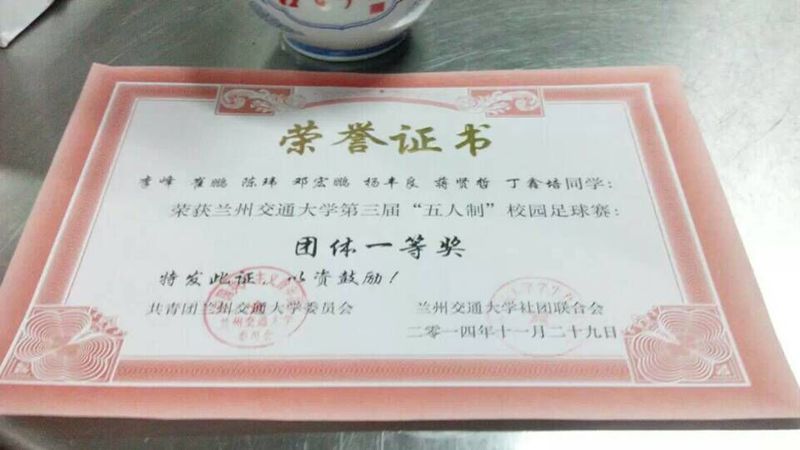 荣誉证书
李峰 崔鹏 陈玮 邓宏鹏 杨丰良 蒋贤哲 丁鑫培同学：
荣获兰州交通大学第三届“五人制”校园足球赛：
团体一等奖
特发此证，以资鼓励！
共青团兰州交通大学委员会 兰州交通大学社团联合会
二零一四年十一月二十九日
兰州交通大学
委员会